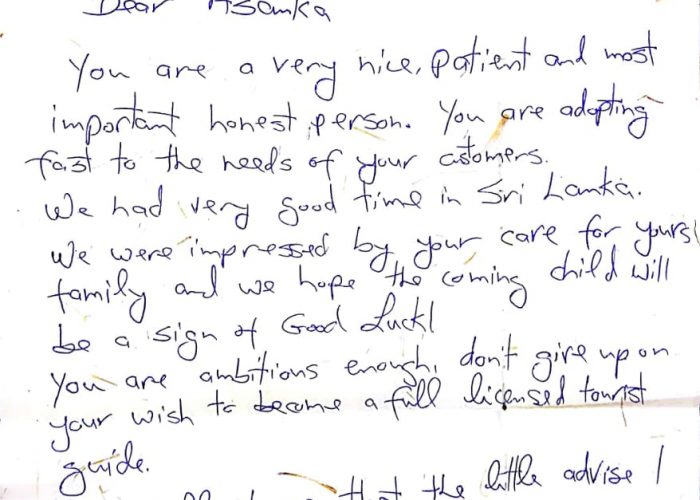 Dear Asanka
You are a very nice, patient and most
important honest person. You are adopting
fast to the needs of your customers.
We had very good time in Sri Lanka.
We were impressed by your care for yours
family and we hope the coming child will
be a sign of Good Luck!
You are ambitions enough, don't give up on
your wish to become a full licensed tourist
guide.
that the little advise I